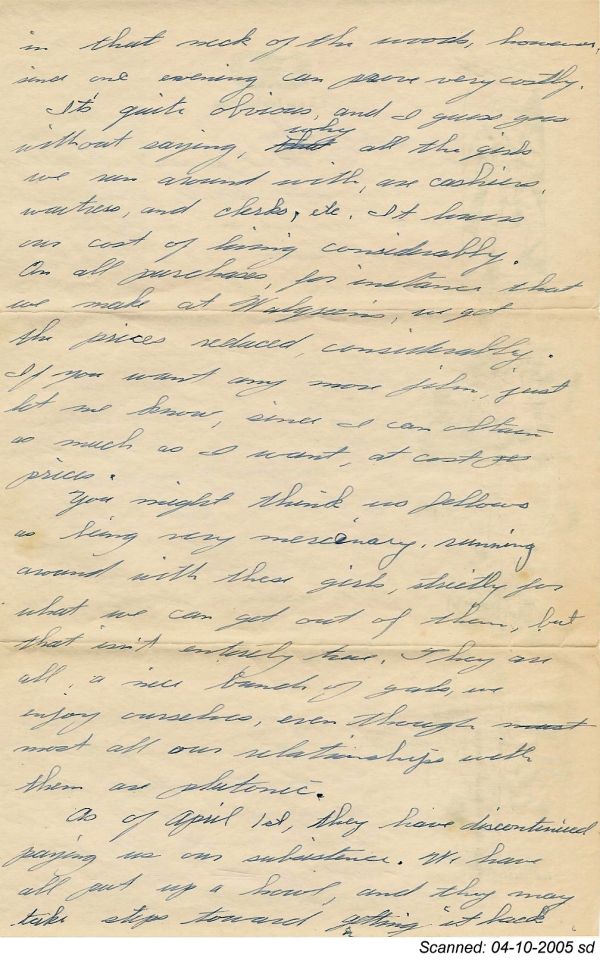 in that neck of the woods, however,
since one evening can prove very costly.
It's quite obvious, and I guess goes
without saying, why all the girls
we run around with, are cashiers,
waitress, and clerks, etc. It lowers
our cost of living considerably.
On all purchases, for instance that
we make at Walgreens, we get
the prices reduced, considerably.
If you want any more film, just
let me know, since I can obtain
as much as I want, at cost
prices.
You might think us fellows
as being very mercinary, running
around with these girls, strictly for
what we can get out of them, but
that isn't entirely true. They are
all, a nice bunch of gals, we
enjoy ourselves, even though
most all our relationships with
them are plutonic.
As of April 1st, they have discontinued
paying us our subsistence. We have
all put up a howl, and they may
take steps toward getting it back
Scanned: 04-10-2005 sd